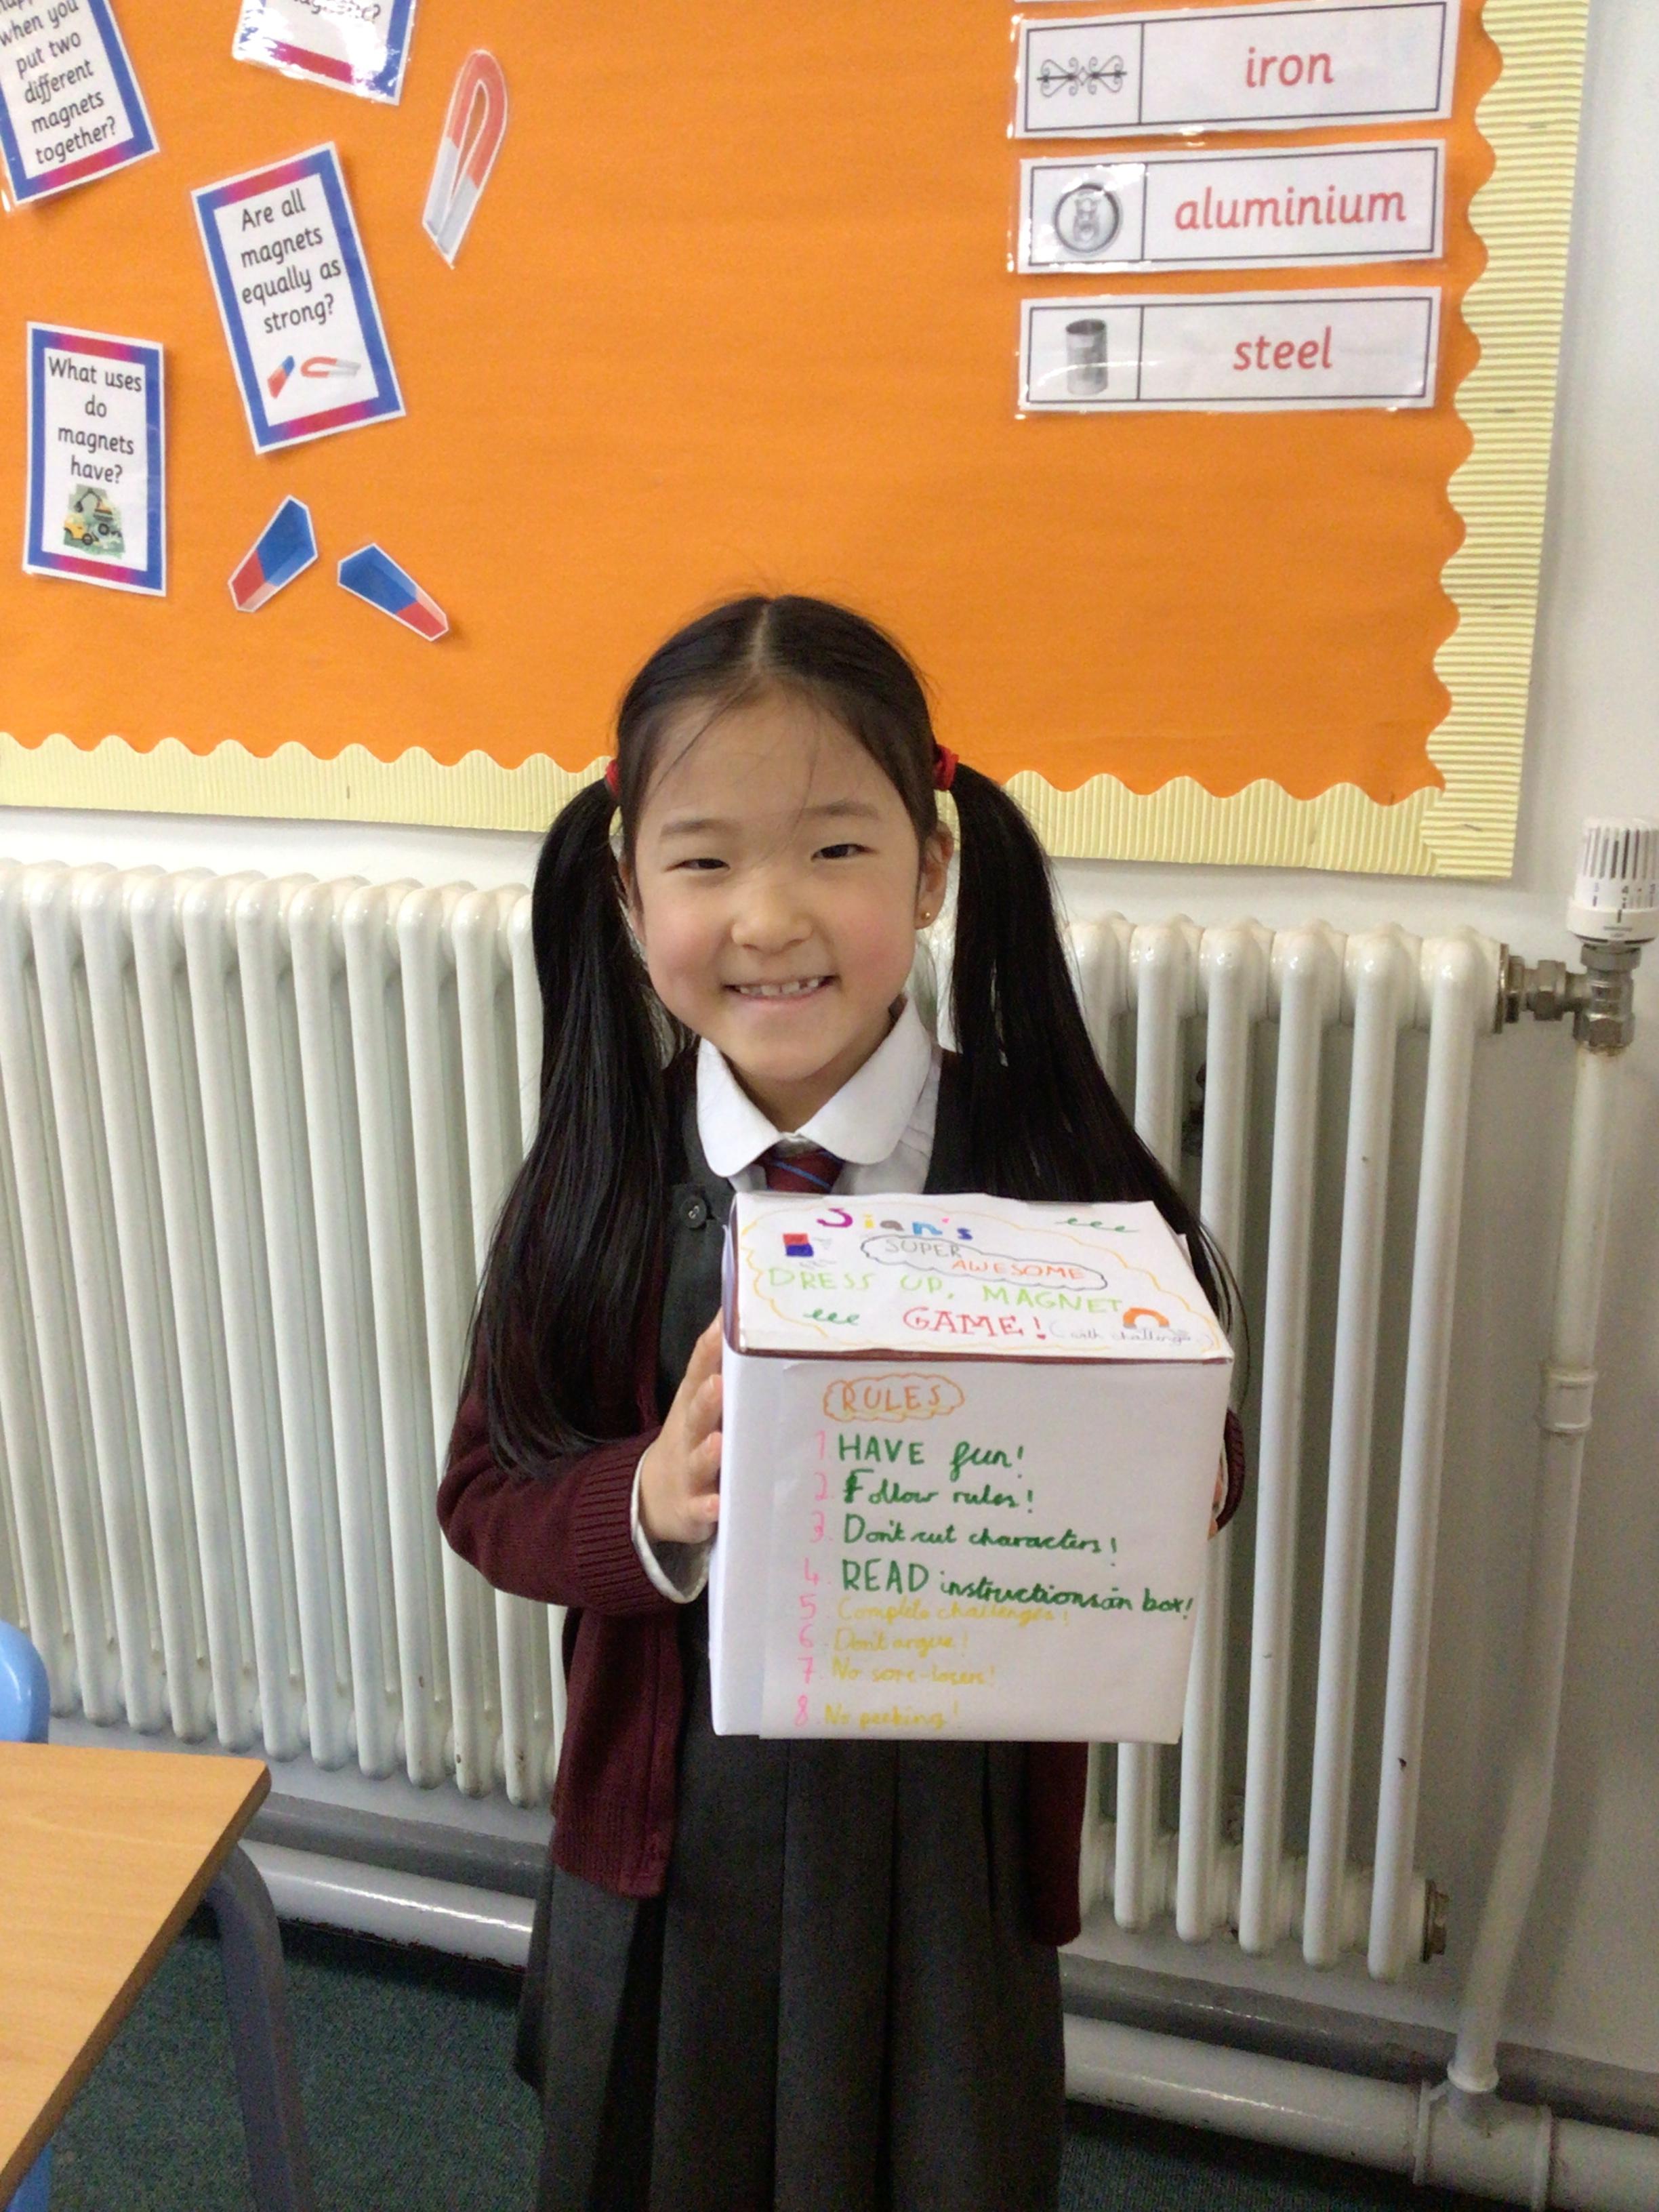 when you
put two
different
magnets
together?
magnetic?
Are all
magnets
equally as
strong?
What uses
do
magnets
have?
iron
aluminium
steel
Jian's
SUPER
AWESOME
DRESS UP, MAGNET
GAME! (with challenges)
RULES
1. HAVE fun!
2. Follow rules!
3. Don't cut characters!
4. READ instructions in box!
5. Complete challenges!
6. Don't argue!
7. No sore-losers!
8. No peeking!